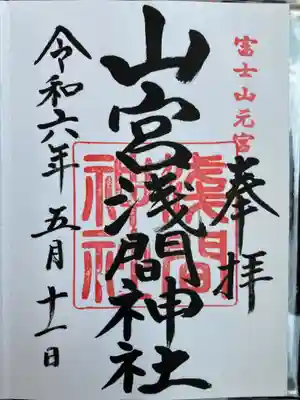 富士山元宮
奉拝
山宮淺間神社
淺間
神社
令和六年五月十一日